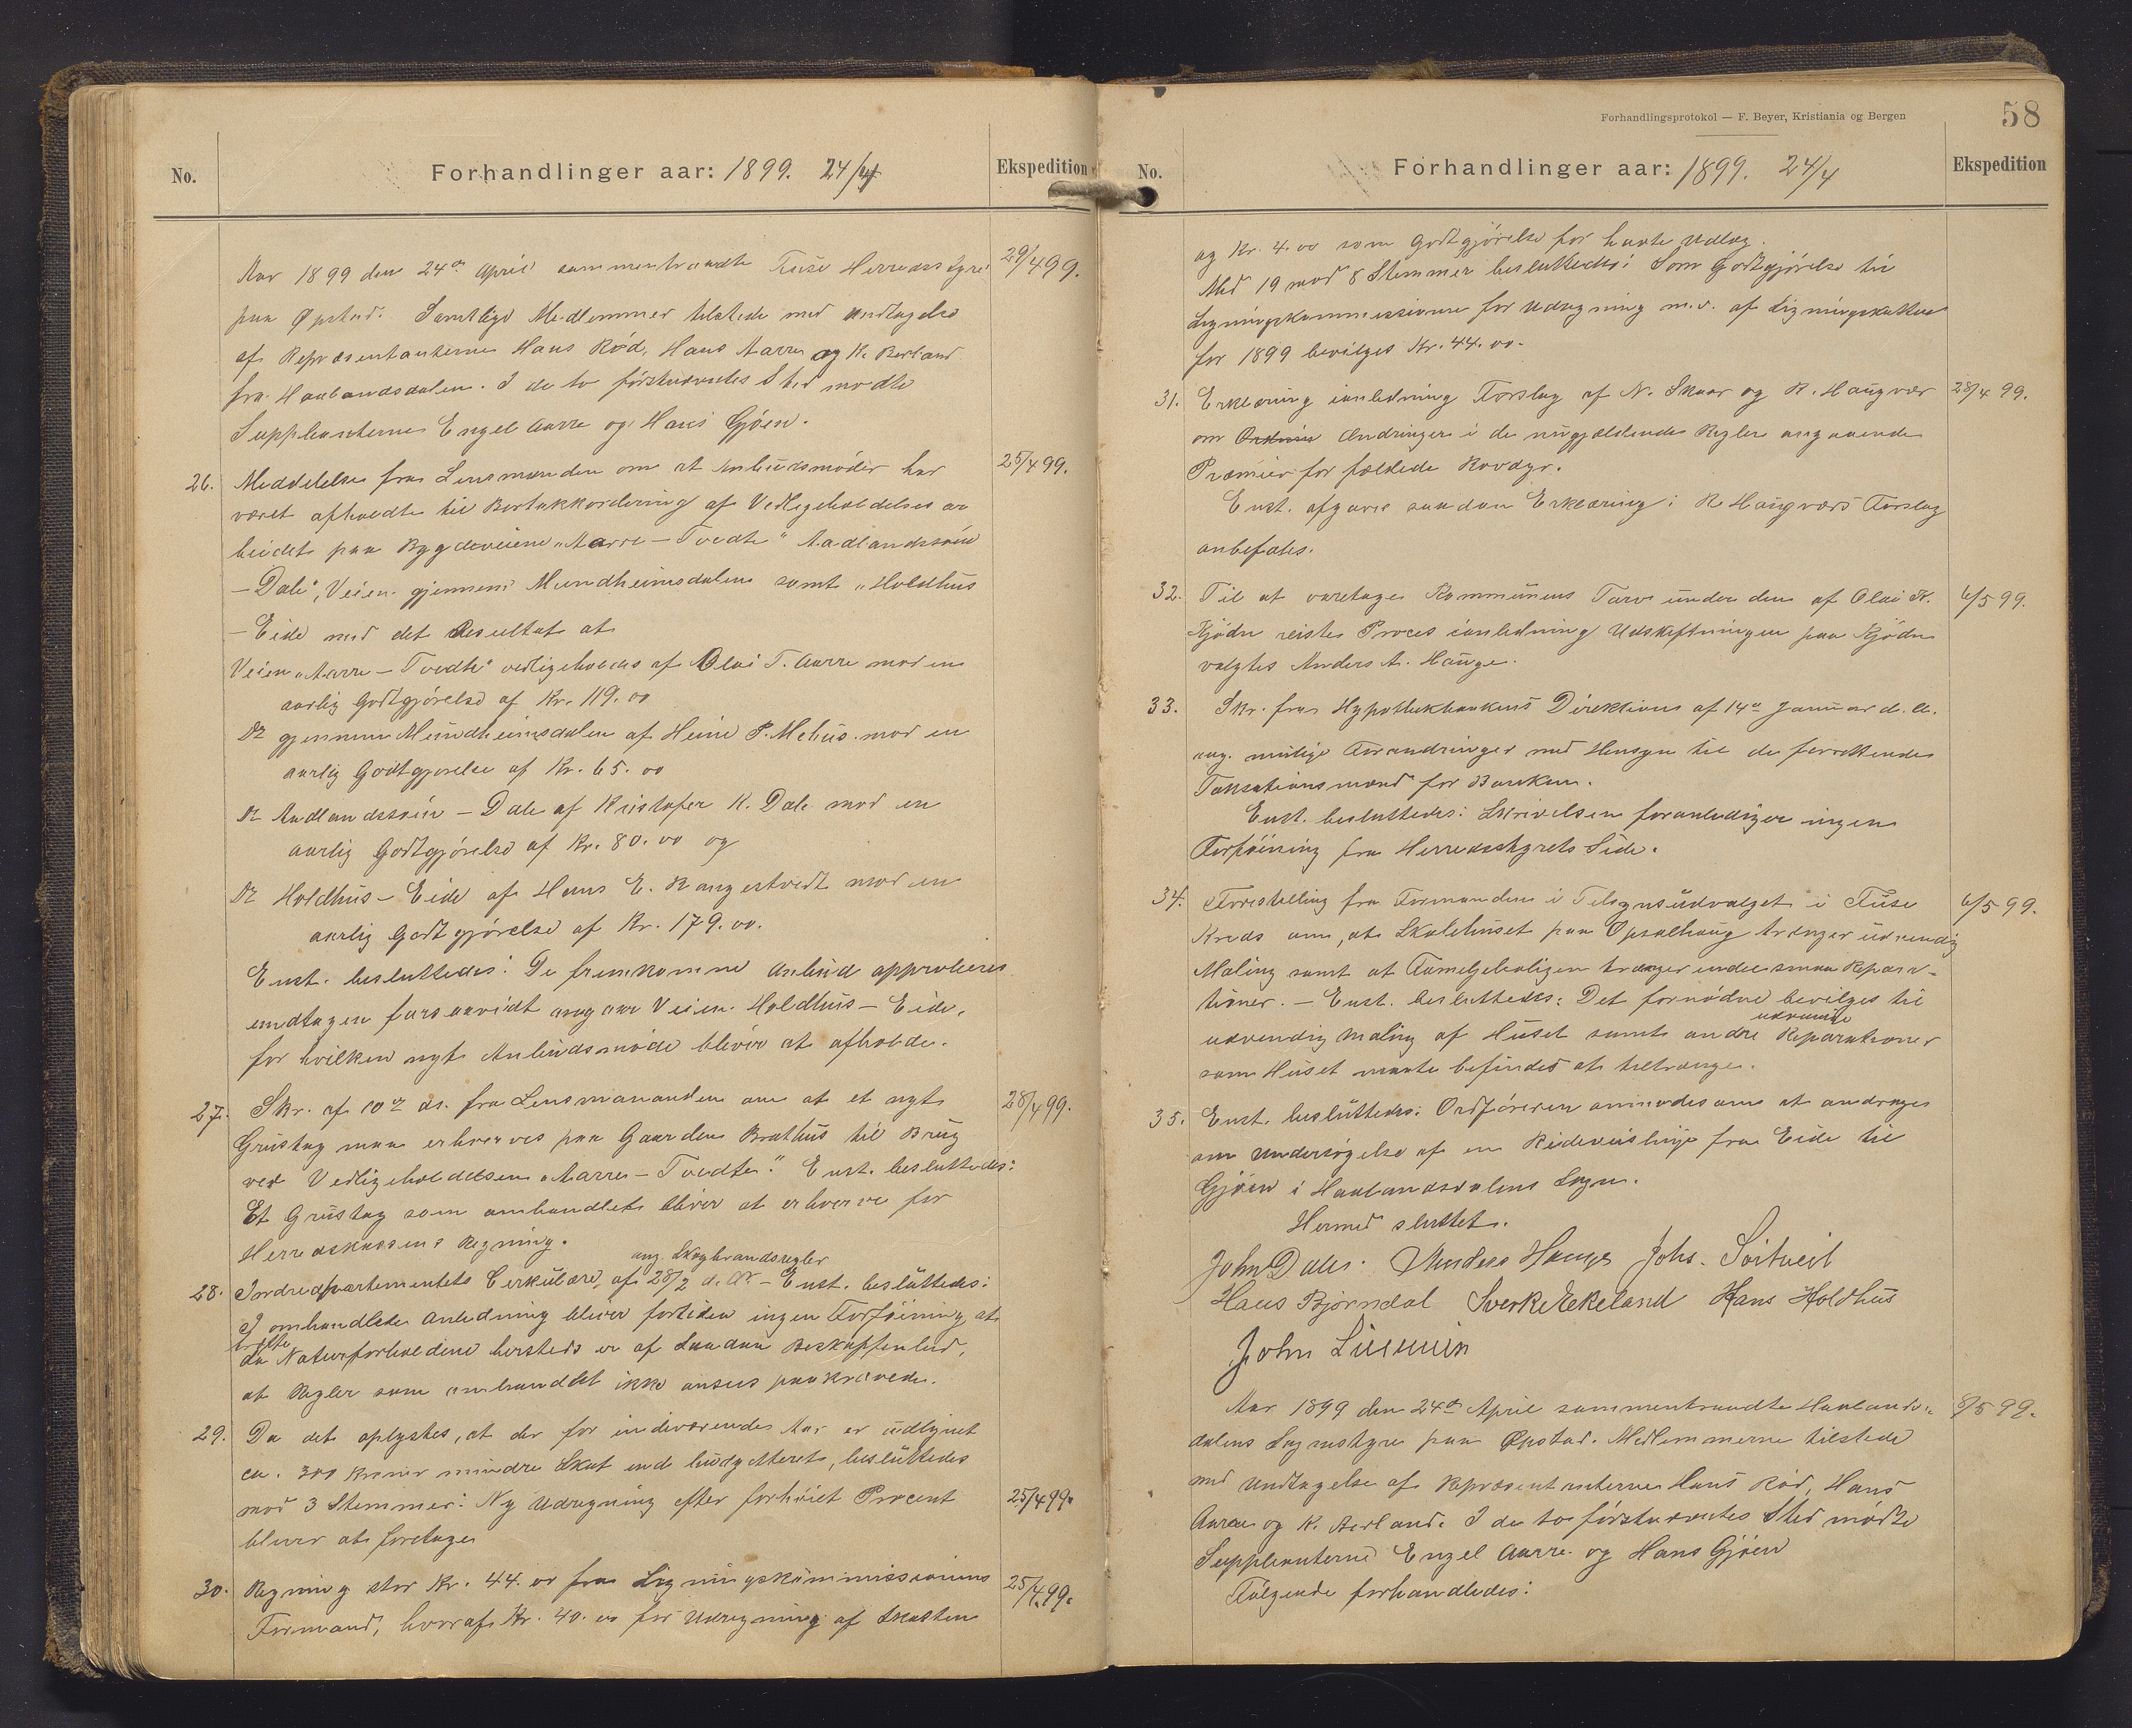 No.
Forhandlinger aar: 1899. 24/4
Ekspedition
Aar 1899 den 24de April sammentraadte Fuse Herredsstyre 29/4 99.
paa Øpstad. Samtlige Medlemmer tilstede med undtagelse
af Repræsentanterne Hans Röd, Hans Aarre og K. Berland
fra Haalandsdalen. I de to förstnævntes Sted mödte
Suppleanterne Engel Aarre og Hans Gjöen.
26. Meddelelse fra Lensmanden om at Anbudsmöder har 25/4 99.
været afholdt til Bortakkordering af Vedligeholdelsesar
beidet paa Bygdeveiene "Aarre – Tvedte" Aadlandssöin
– Dale", Veien gjennem Mundheimsdalen samt "Holdhus
– Eide med det Resultat at
Veien "Aarre – Tvedte" vedligeholdes af Olai T. Aarre mod en
aarlig Godtgjörelse af Kr. 119.00
Do gjennem Mundheimsdalen af Heine P. Mehus mod en
aarlig Godtgjörelse af Kr. 65.00
Do Aadlandssöin – Dale af Kristofer K. Dale mod en
aarlig Godtgjörelse af Kr. 80.00 og
Do Holdhus – Eide af Hans E. Rangestvedt mod en
aarlig Godtgjörelse af Kr. 179.00.
Enst. besluttedes: De fremkomne Anbud approberes
undtagen forsaavidt angaar Veien Holdhus – Eide,
for hvilken nyt Anbudsmöde bliver at afholde.
27. Skr. af 10de ds. fra Lensmanden om at et nyt 28/4 99.
Grustag maa erhverves paa Gaarden Brathus til Brug
ved Vedligeholdelsen "Aarre – Tvedte." Enst. besluttedes:
Et Grustag som omhandlet bliver at erhverve for
Herredskassens Regning.
ang. Skogbrandsregler
28. Indredepartementets Cirkulære af 28/2 d. A. – Enst. besluttedes:
I omhandlede Anledning bliver fortiden ingen Forföining at
træffe
da Naturforholdene hersteds er af saadan Beskaffenhed,
at Regler som omhandlet ikke ansees paakrævede.
29. Da det oplystes, at der for indeværende Aar er udlignet
ca. 300 Kroner mindre Skat end budgetteret, besluttedes
mod 3 Stemmer: Ny Udregning efter forhöiet Procent 25/4 99.
bliver at foretage
30. Regning stor Kr. 44.00 fra Ligningskommissionens 25/4 99.
Formand, hvoraf Kr. 40.00 for Udregning af Skatten
Forhandlingsprotokol — F. Beyer, Kristiania og Bergen
58
No.
Forhandlinger aar: 1899. 24/4
Ekspedition
og Kr. 4.00 som Godtgjörelse for havte Udlæg.
Med 19 mod 8 Stemmer besluttedes: Som Godtgjörelse til
Ligningskommissionen for Udregning m.v. af Ligningsskatten
for 1899 bevilges Kr. 44.00.
31. Erklæring ianledning Forslag af N. Skaar og R. Haugvær 28/4 99.
om Ændringer i de nugjældende Regler angaaende
Præmier for fældede Rovdyr.
Enst. afgaves saadan Erklæring: R Haugværs Forslag
anbefales.
32. Til at varetage Kommunens Tarv under den af Olai N. 6/5 99.
Kjödn reiste Proces ianledning Udskiftningen paa Kjödn
valgtes Anders A. Hauge.
33. Skr. fra Hypothekbankens Direktion af 14de Januar d. A.
ang. mulige Forandringer med Hensyn til de forrettende
Taksationsmænd for Banken.
Enst. besluttedes: Skrivelsen foranlediger ingen
Forföining fra Herredsstyrets Side.
34. Forestilling fra Formanden i Tilsynsudvalget i Fuse 6/5 99.
Kreds om, at Skolehuset paa Opsalhaug trænger udvendig
Maling samt at Familjeboligen trænger endel smaa Repara-
tioner. – Enst. besluttedes: Det fornödne bevilges til
udvendige
udvendig Maling af Huset samt andre Reparationer
som Huset maatte befindes at tiltrænge.
35. Enst. besluttedes: Ordföreren anmodes om at andrage
om Undersögelse af en Rideveislinje fra Eide til
Gjöen i Haalandsdalens Sogn.
Hermed sluttet.
John Dale. Anders Hauge Johs. Söitveit
Hans Björndal Sverke Ekeland Hans Holdhus
John
Aar 1899 den 24de April sammentraadte Haalands- 8/5 99.
dalens Sognestyre paa Øpstad. Medlemmerne tilstede
med Undtagelse af Repræsentanterne Hans Röd, Hans
Aarre og K. Berland. I de to förstnævntes Sted mödte
Suppleanterne Engel Aarre og Hans Gjöen
Fölgende forhandledes: